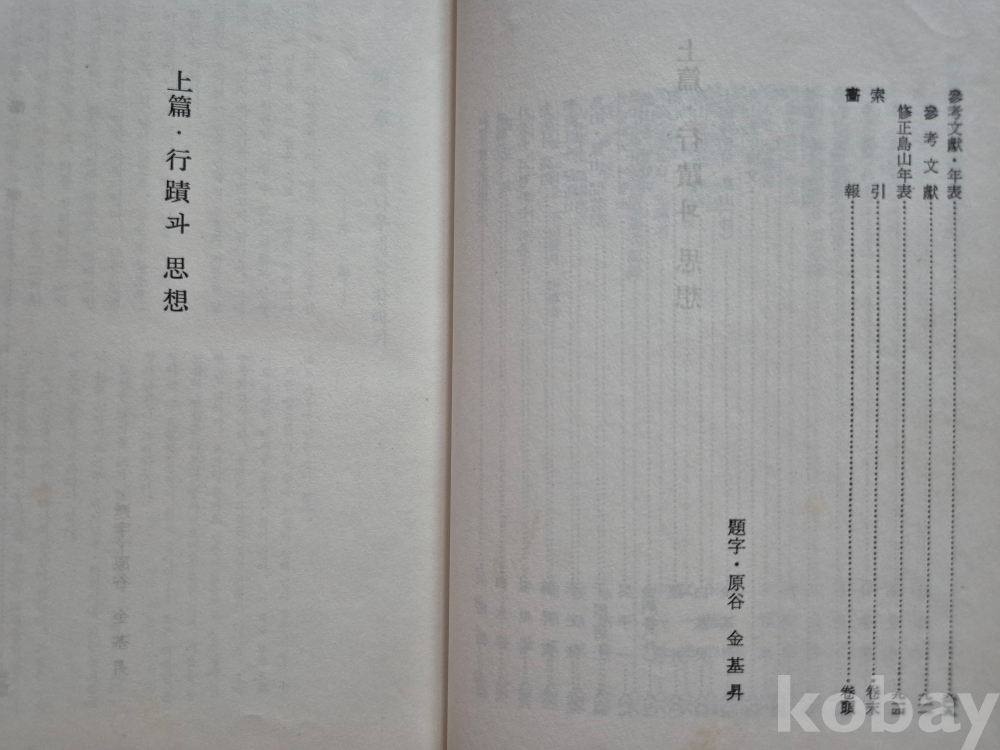 參考文獻・年表
參考文獻
修正島山年表
索引 卷末
畵報 卷頭
題字・原谷 金基昇
上篇・行蹟과 思想
kobay